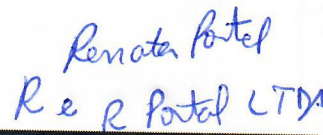 Renata Portal
R e R Portal LTDA